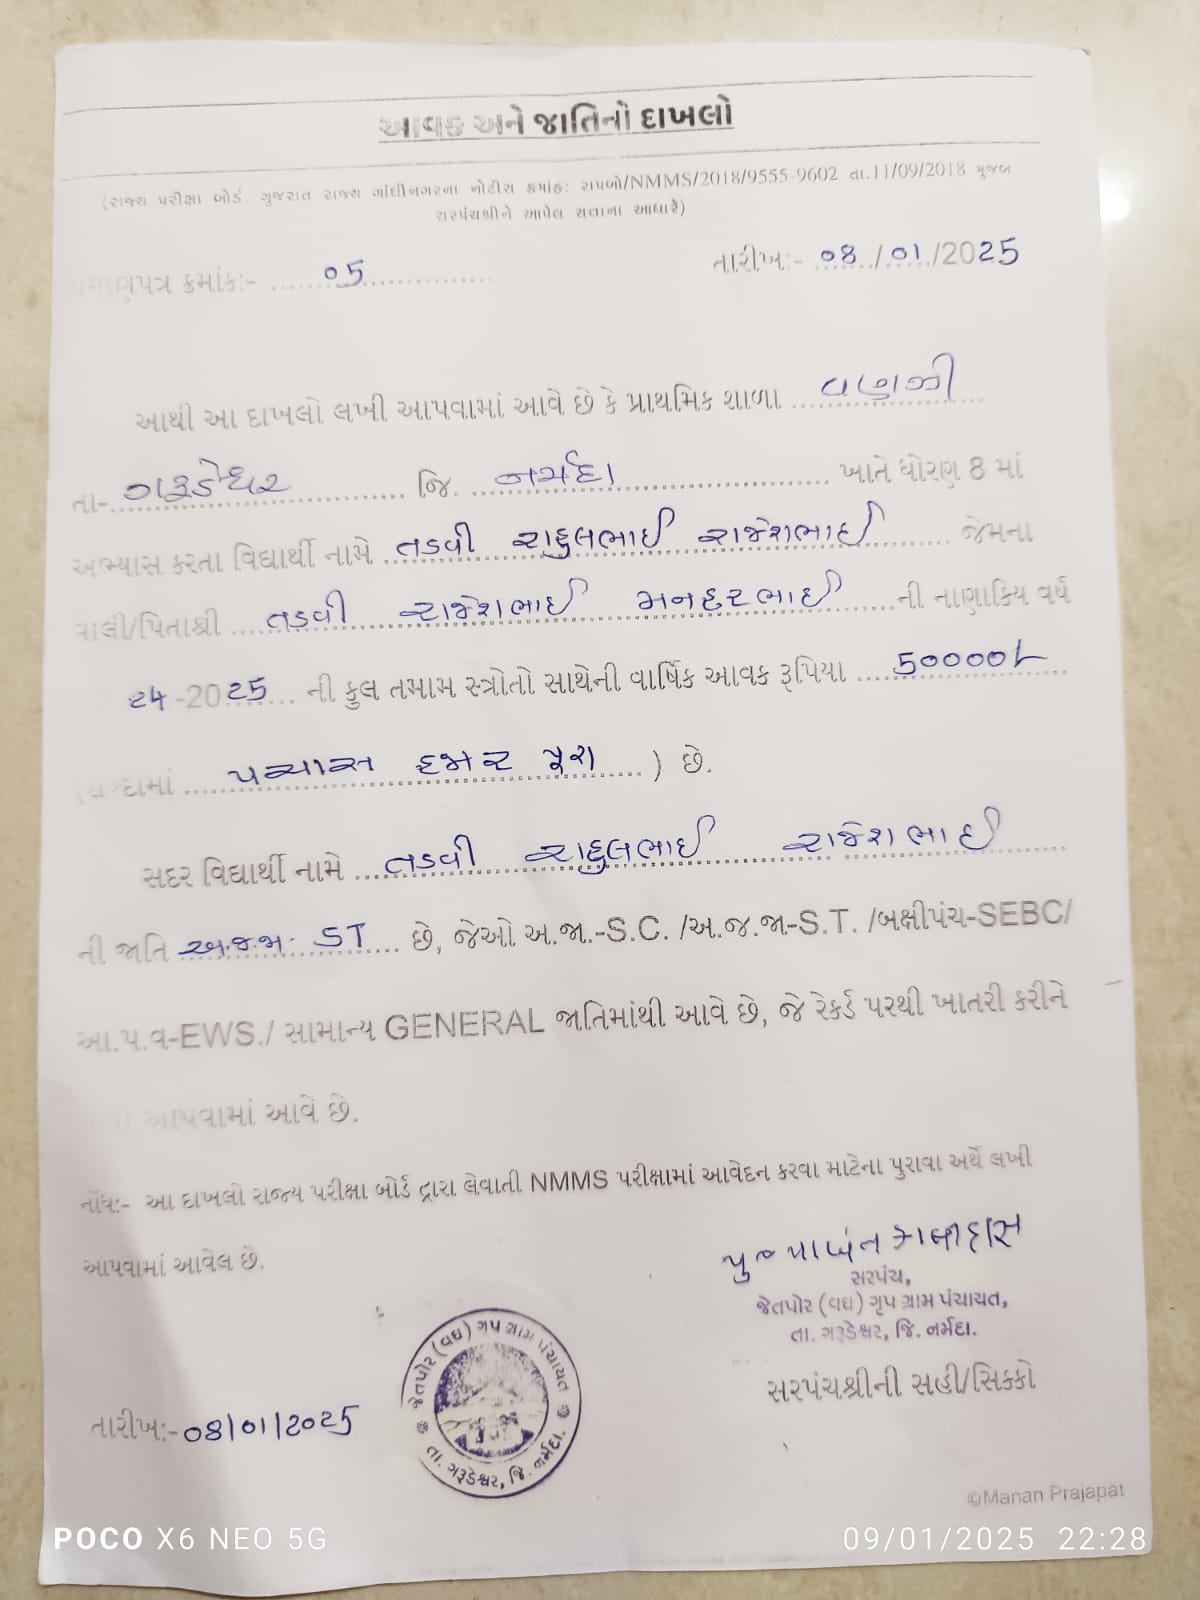 આવક અને જાતિનો દાખલો
(રાજ્ય પરીક્ષા બોર્ડ, ગુજરાત રાજ્ય ગાંધીનગરના નોટીસ ક્રમાંક: રાપબો/NMMS/2018/9555-9602 તા.11/09/2018 મુજબ
સરપંચશ્રીને આપેલ સત્તાના આધારે)
પ્રમાણપત્ર ક્રમાંક:- 05
તારીખ:- 08/01/2025
આથી આ દાખલો લખી આપવામાં આવે છે કે પ્રાથમિક શાળા
તા- ગરૂડેશ્વર જિ. નર્મદા ખાતે ધોરણ 8 માં
અભ્યાસ કરતા વિદ્યાર્થી નામે તડવી રાહુલભાઈ રાજેશભાઈ જેમના
વાલી/પિતાશ્રી તડવી રાજેશભાઈ મનહરભાઈ ની નાણાકિય વર્ષ
24-2025 ની કુલ તમામ સ્ત્રોતો સાથેની વાર્ષિક આવક રૂપિયા 50000/-
(શબ્દોમાં પચાસ હજાર પૂરા ) છે.
સદર વિદ્યાર્થી નામે તડવી રાહુલભાઈ રાજેશભાઈ
ની જાતિ અ.જ.જા. ST છે, જેઓ અ.જા.-S.C. /અ.જ.જા-S.T. /બક્ષીપંચ-SEBC/
આ.પ.વ-EWS./ સામાન્ય GENERAL જાતિમાંથી આવે છે, જે રેકર્ડ પરથી ખાતરી કરીને
આપવામાં આવે છે.
નોંધ:- આ દાખલો રાજ્ય પરીક્ષા બોર્ડ દ્વારા લેવાતી NMMS પરીક્ષામાં આવેદન કરવા માટેના પુરાવા અર્થે લખી
આપવામાં આવેલ છે.
સરપંચ,
જેતપોર (વઘ) ગૃપ ગ્રામ પંચાયત,
તા. ગરૂડેશ્વર, જિ. નર્મદા.
સરપંચશ્રીની સહી/સિક્કો
જેતપોર (વઘ) ગૃપ ગ્રામ પંચાયત
તા. ગરૂડેશ્વર, જિ. નર્મદા.
તારીખ:- 08/01/2025
©Manan Prajapat
POCO X6 NEO 5G
09/01/2025 22:28